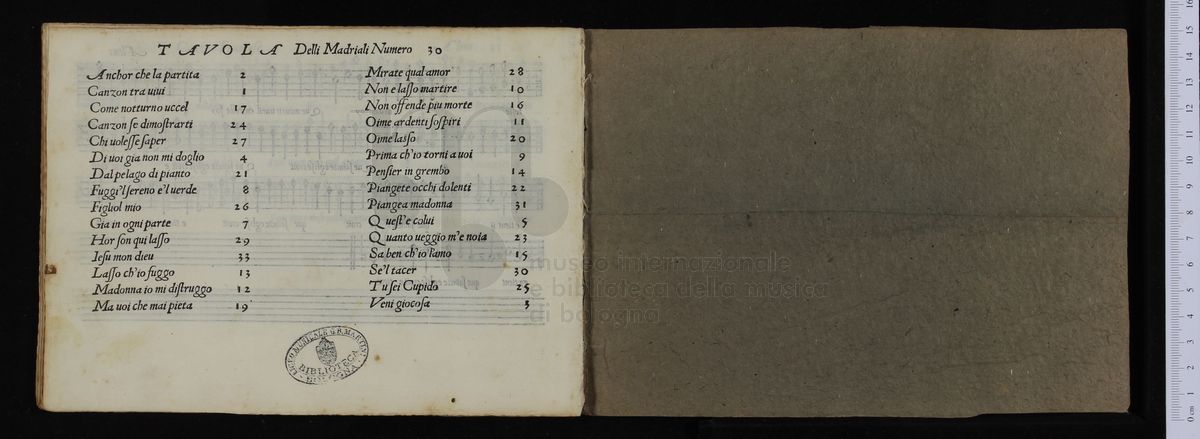 TAVOLA Delli Madriali Numero 30
Anchor che la partita 2
Canzon tra uiui 1
Come notturno uccel 17
Canzon se dimostrarti 24
Chi uolesse saper 27
Di uoi gia non mi doglio 4
Dal pelago di pianto 21
Fuggi'l sereno e'l uerde 8
Figliol mio 26
Gia in ogni parte 7
Hor son qui lasso 29
Iesu mon dieu 33
Lasso ch'io fuggo 13
Madonna io mi distruggo 12
Ma uoi che mai pieta 19
Mirate qual amor 28
Non e lasso martire 10
Non offende piu morte 16
Oime ardenti sospiri 11
Oime lasso 20
Prima ch'io torni a uoi 9
Pensier in grembo 14
Piangete occhi dolenti 22
Piangea madonna 31
Quest'e colui 5
Quanto ueggio m'e noia 23
Sa ben ch'io l'amo 15
Se'l tacer 30
Tu sei Cupido 25
Veni giocosa 3
LICEO MUSICALE G. B. MARTINI
BIBLIOTECA
BOLOGNA
museo internazionale
e biblioteca della musica
di bologna